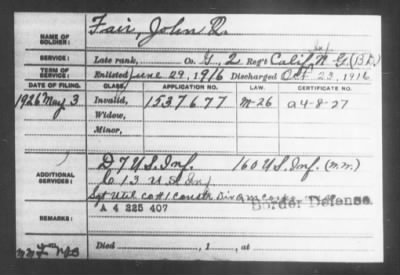 NAME OF SOLDIER: Fair, John R.
SERVICE: Late rank, Co. G, 2 Reg't Calif. Inf. N. G. (B.D.)
TERM OF SERVICE: Enlisted June 29, 1916 Discharged Oct 23, 1916
DATE OF FILING. CLASS. APPLICATION NO. LAW. CERTIFICATE NO.
1926 May 3 Invalid, 1537677 M-26 a4-8-27
Widow,
Minor,
D 7 U.S. Inf. 160 U.S. Inf. (m.m.)
ADDITIONAL SERVICES: C 13 U.S. Inf
Sgt Util Co #1 Constr Div Qm Corps
Border Defense.
A 4 225 407
REMARKS:
Died , 1 , at